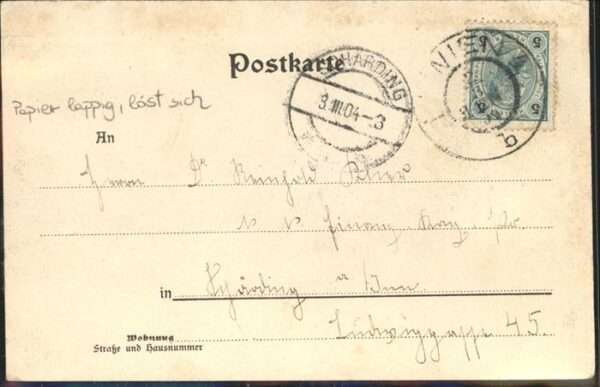 Postkarte
SCHARDING
3.III.04-3
WIEN
5 5
5 5
Papier lappig, löst sich
An
Herrn Dr Reinhold
k k Finanz
in Schärding a Inn
Wohnung
Straße und Hausnummer
Ludwiggasse 45.